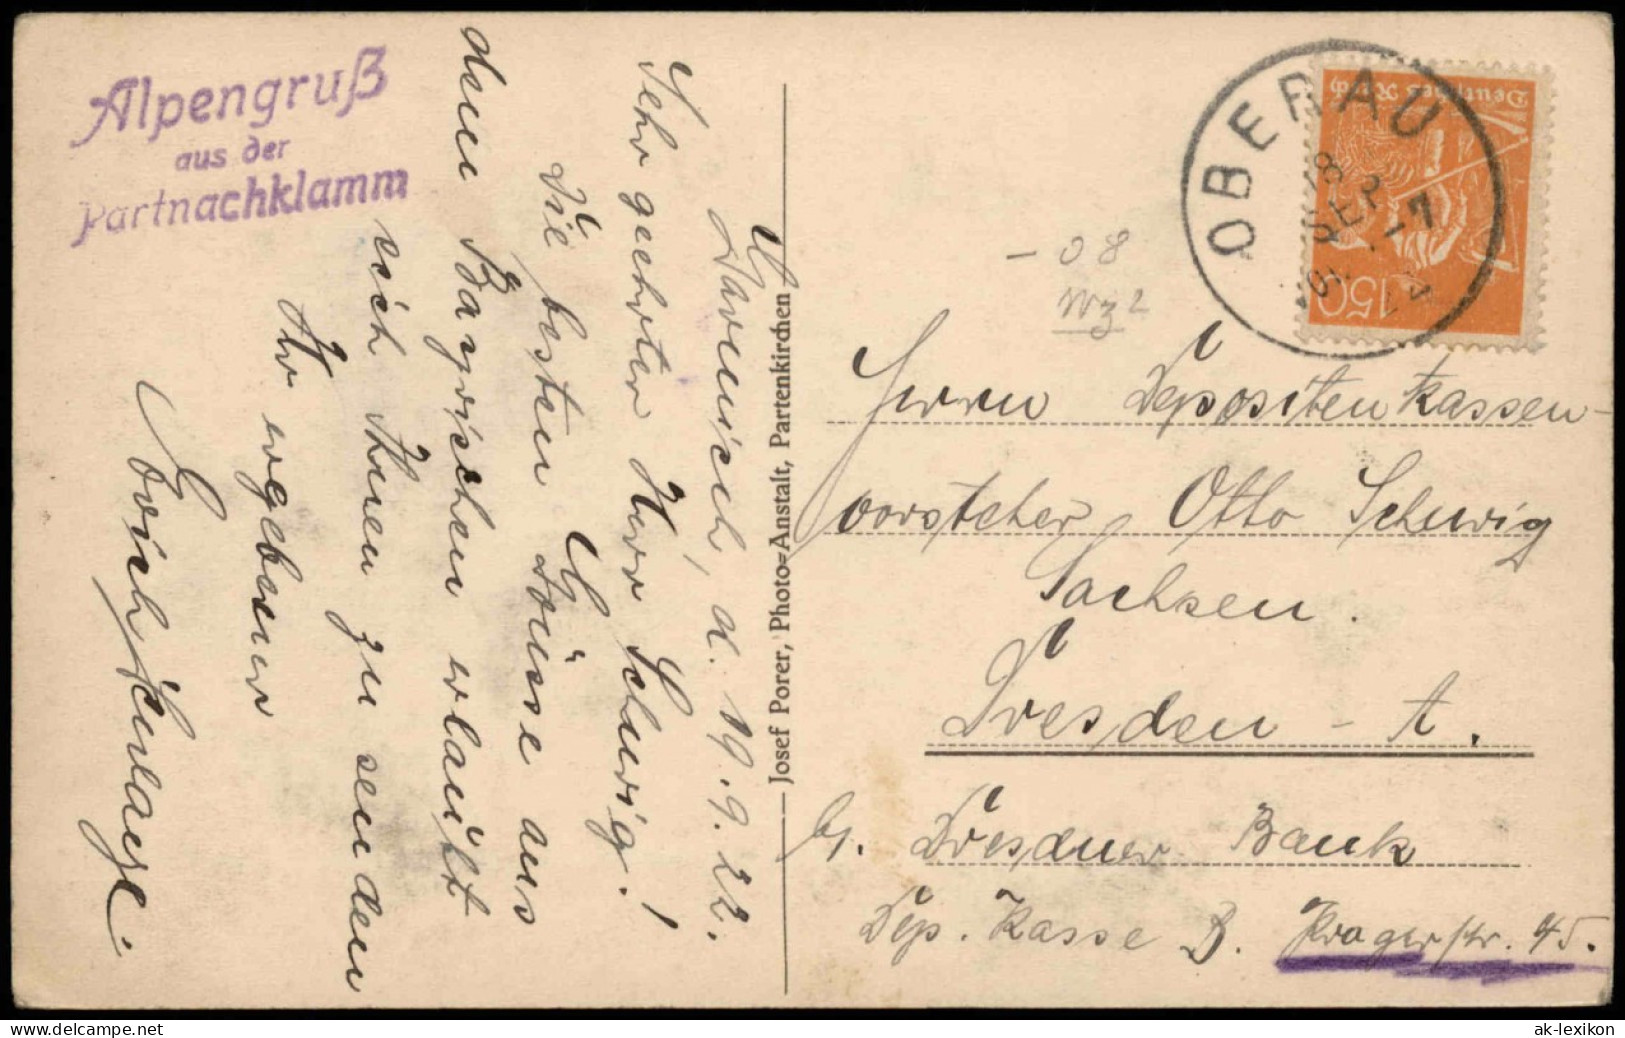 Alpengruß
aus der
Partnachklamm
Garmisch, d. 19.9.22.
Sehr geehrter Herr Schurig!
Die besten Grüsse aus
dem Bayrischen erlaubt
sich Ihnen zu senden
Ihr ergebener
Erich
Josef Porer, Photo=Anstalt, Partenkirchen
OBERAU
SEP
Deutsches Reich
150
- 08
Wz 2
Herrn Depositenkassen-
vorsteher Otto Schurig
Sachsen.
Dresden - A.
Dresdner Bank
Dep. Kasse B. Pragerstr. 45.
ak-lexikon